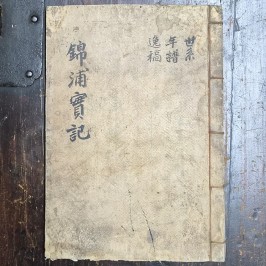 錦浦實記
世系
年譜
逸稿